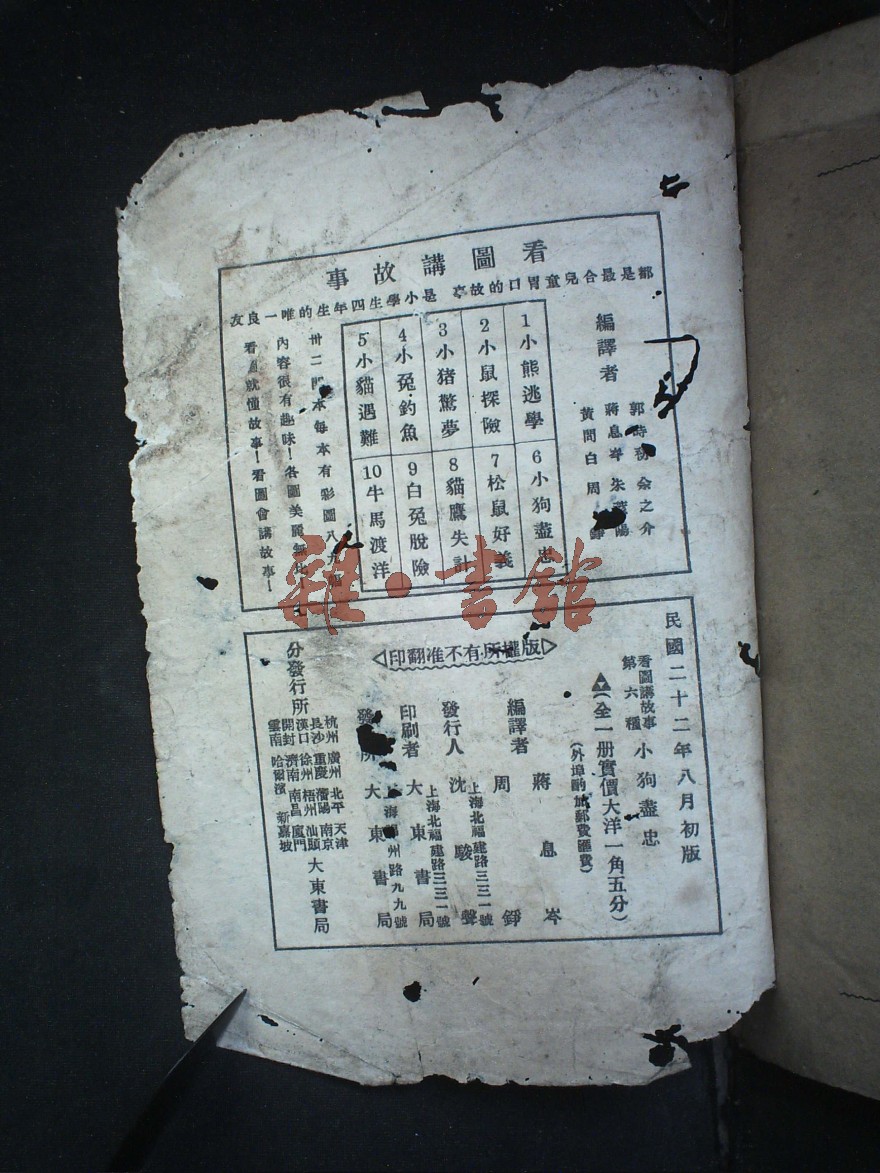 看圖講故事
都是最合兒童胃口的故 是小學生四年生的唯一良友
編譯者
郭 余之介
蔣息岑 朱 陽
黃問白 周
1 小熊逃學
2 小鼠探險
3 小猪驚夢
4 小兔釣魚
5 小貓遇難
6 小狗盡忠
7 松鼠好義
8 貓鷹失計
9 白兔脫險
10 牛馬渡洋
卅二開本每本有彩圖八九
內容很有趣味！各圖美麗
看 就懂故事！看圖會講故事！
民國二十二年八月初版
看圖講故事
第六種
小狗盡忠
(全一册實價大洋一角五分)
(外埠酌加郵費匯費)
編譯者
蔣息岑
周錚
發行人
上海北福建路三三一號
沈駿聲
印刷者
上海北福建路三三一號
大東書局
發 所
上海 州路九九號
大東書局
版權所有不准翻印
分發行所
杭州 廣州 北平 天津
長沙 重慶 瀋陽 南京
漢口 徐州 梧州 汕頭
開封 濟南 南昌 廈門
雲南 哈爾濱 新嘉坡
大東書局
雜·書館